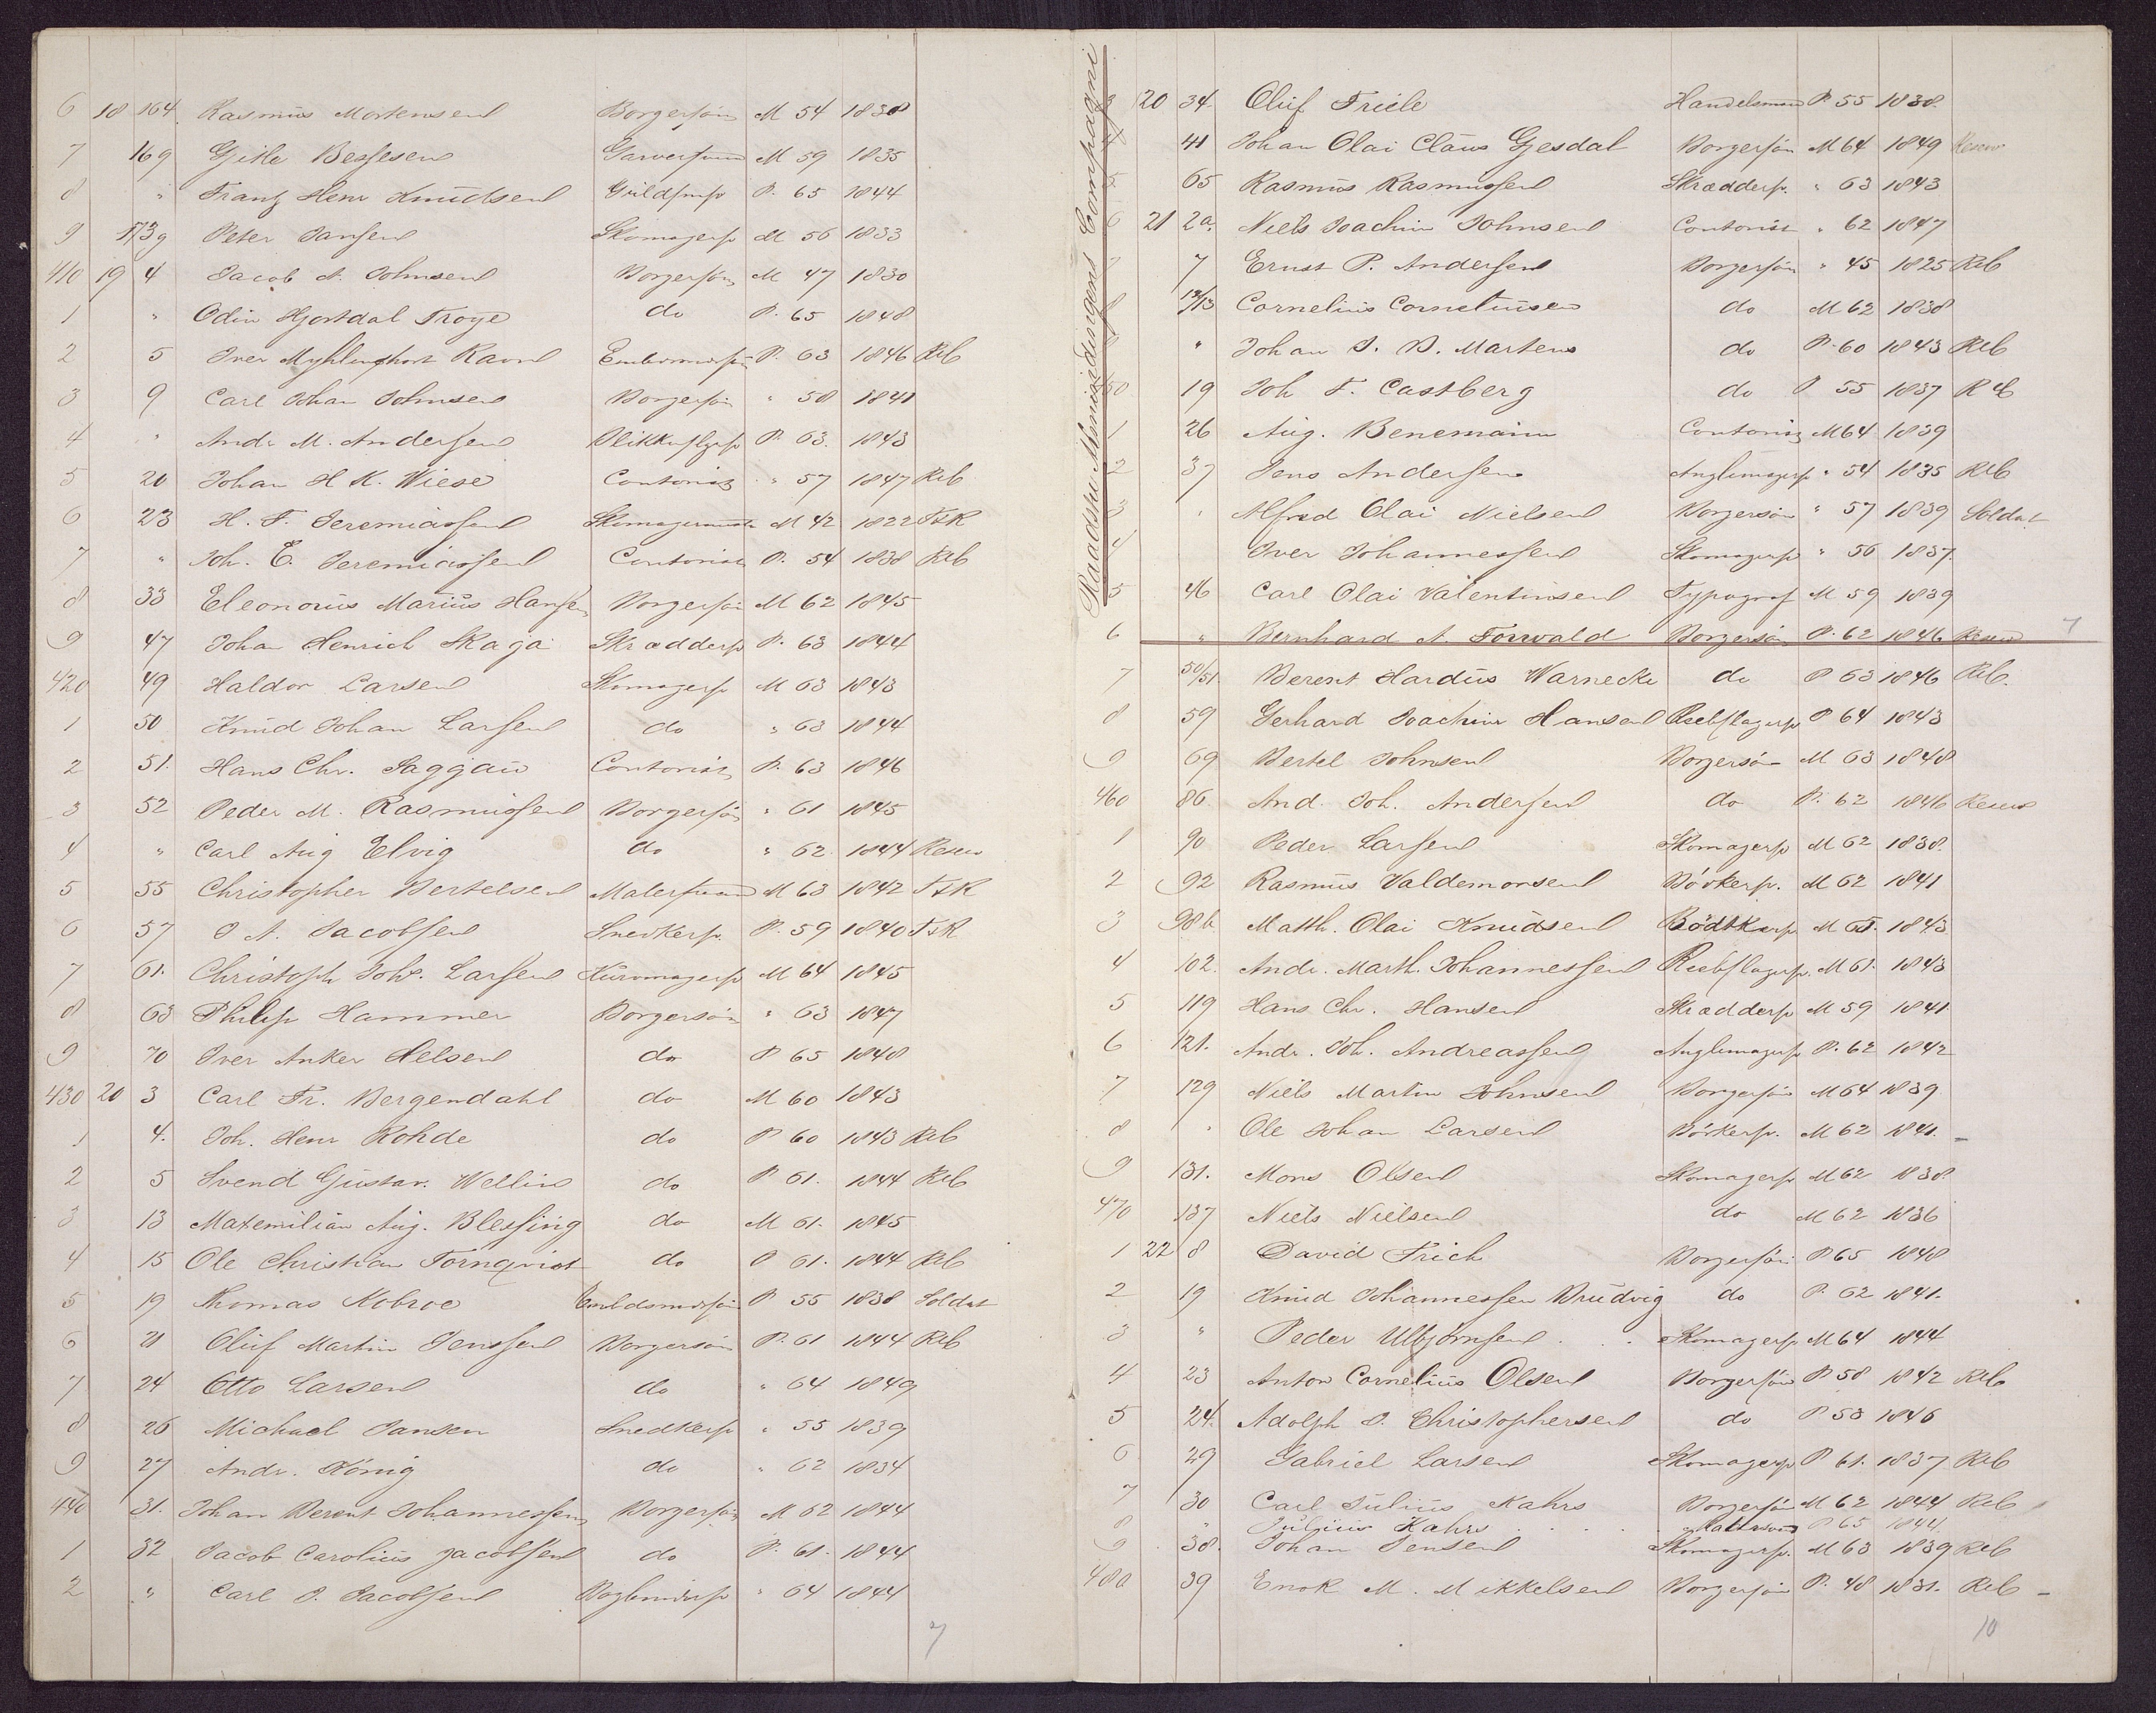 6 18 164. Rasmus Mortensen Borgersøn M 54 1838
7 169 Gitle Bessesen Garversvend M 59 1835
8 " Franz Henr Knudsen Guldsmsv P. 65 1844
9 173g Peter Jansen Skomagersv M 56 1833
410 19 4 Jacob A. Johnsen Borgersøn M 47 1830
1 " Odin Hjortdal Troye do P. 65 1848
2 5 Iver Myhlenphort Ravn P. 63 1846 Reb
3 9 Carl Johan Johnsen Borgersøn " 58 1841
4 " Andr M. Andersen Blikkenslgsv P. 63. 1843
5 20 Johan H K. Wiese Contorist " 57 1847 Reb
6 23 H. F. Jeremiassen M 42 1822 FsK
7 " Joh. E. Jeremiassen Contorist P. 54 1838 Reb
8 33 Eleonorus Marius Hansen Borgersøn M 62 1845
9 47 Johan Henrich Skaga Skræddersv P. 63 1844
420 49 Haldor Larsen Skomagersv M 63 1843
1 50 Knud Johan Larsen do " 63 1844
2 51. Hans Chr. Saggau Contorist P. 63 1846
3 52 Peder M. Rasmussen Borgersøn " 61 1845
4 " Carl Aug Elvig do " 62. 1844 Reserv
5 55 Christopher Bertelsen Malersvend M 63 1842 FsK
6 57 J. A. Jacobsen Snedkersv. P. 59 1840 FsK
7 61. Christoph Joh. Larsen Kurvmagersv M 64 1845
8 63 Philip Hammer Borgersøn " 63 1847
9 70 Iver Anker Helsen do P 65 1848
430 20 3 Carl Fr. Bergendahl do M 60 1843
1 4. Joh. Henr Rohde do P 60 1843 Reb
2 5 Svend Gustav. Wellin do P 61. 1844 Reb
3 13 Maxemilian Aug. Blessing do M 61. 1845
4 15 Ole Christian Tornqvist do P 61. 1844 Reb
5 19 Thomas Kobroe P 55 1838 Soldat
6 21 Oluf Martin Jenssen Borgersøn P. 61 1844 Reb
7 24 Otto Larsen do " 64 1849
8 26 Michael Jansen Snedkersv " 55 1839
9 27 Andr. König do " 62 1834
440 31. Johan Berent Johannessen Borgersøn M 62 1844
1 32 Jacob Carolius Jacobsen do P. 61. 1844
2 " Carl J. Jacobsen Bogbindersv " 64 1844
7
Raadstu Mønstedingens Compagni
3 20 34. Oluf Friele Handelsmand P. 55 1838.
4 41 Johan Olai Claus Gjesdal Borgersøn M 64 1849 Reserv
5 65 Rasmus Rasmussen Skræddersv. " 63 1843
6 21 2a. Niels Joachim Johnsen Contorist " 62 1847
7 7 Ernst P. Andersen Borgersøn " 45 1825 Reb
8 12/13 Cornelius Corneliusen do M 62 1838
9 " Johan J. D. Martens do P. 60 1843 Reb
50 19 Joh F. Castberg do P 55 1837 Reb
1 26 Aug. Benemann Contorist M 64 1839
2 37 Jens Andersen " 54 1835 Reb
3 " Alfred Olai Nielsen Borgersøn " 57 1839 Soldat
4 Iver Johannessen Skomagersv " 56 1837.
5 46 Carl Olai Valentinsen Typograf M 59 1839
6 " Bernhard A. Forwald Borgersøn P. 62 1846 Reserv 7
7 50/51. Berent Hardus Warnecke do P 63 1846 Reb.
8 59 Gerhard Joachim Hansen Reebslagersv P 64 1843
9 69 Bertel Johnsen Borgersøn M 63 1848
460 86. And. Joh. Andersen do P. 62 1846 Reserv
1 90 Peder Larsen Skomagersv M 62 1838.
2 92 Rasmus Valdemorsen Bødkersv. M 62 1841
3 98b Matth. Olai Knudsen Bödtkersv M 65. 1843
4 102. Andr. Marth. Johannessen Reebslagersv. M 61. 1843
5 119 Hans Chr. Hansen Skræddersv M 59 1841
6 121. Andr. Joh. Andreassen P. 62 1842
7 129 Niels Martin Johnsen Borgersøn M 64 1839
8 " Ole Johan Larsen Bødkersv. M 62 1841. -
9 131. Mons Olsen Skomagersv M 62 1838.
470 137 Niels Nielsen do M 62 1836
1 22 8 David Frich Borgersøn P 65 1848
2 19 Knud Johannessen Brudvig do P. 62 1841.
3 " Peder Ulbjørnsen Skomagersv M 64 1844
4 23 Anton Cornelius Olsen Borgersøn P 58 1842 Reb
5 24. Adolph J. Christophersen do P 53 1846
6 29 Gabriel Larsen Skomagersv P 61. 1837 Reb
7 30 Carl Julius Kahrs Borgersøn M 62 1844 Reb
8 " Julius Kahrs P 65 1844
9 38. Johan Jensen Skomagersv. M 63 1839 Reb
480 39 Enok M. Mikkelsen Borgersøn P. 48 1831. Reb -
10